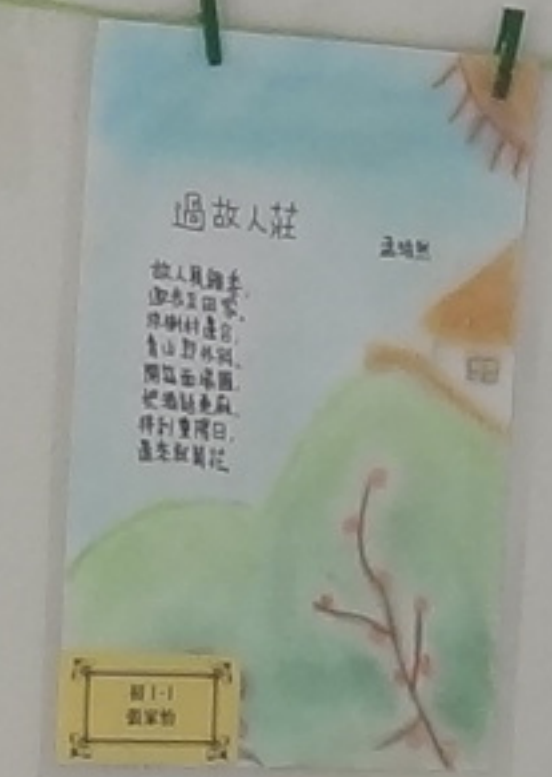 過故人莊
孟浩然
故人具雞黍,
邀我至田家。
綠樹村邊合,
青山郭外斜。
開筵面場圃,
把酒話桑麻。
待到重陽日,
還來就菊花。
初 1-1
張家怡